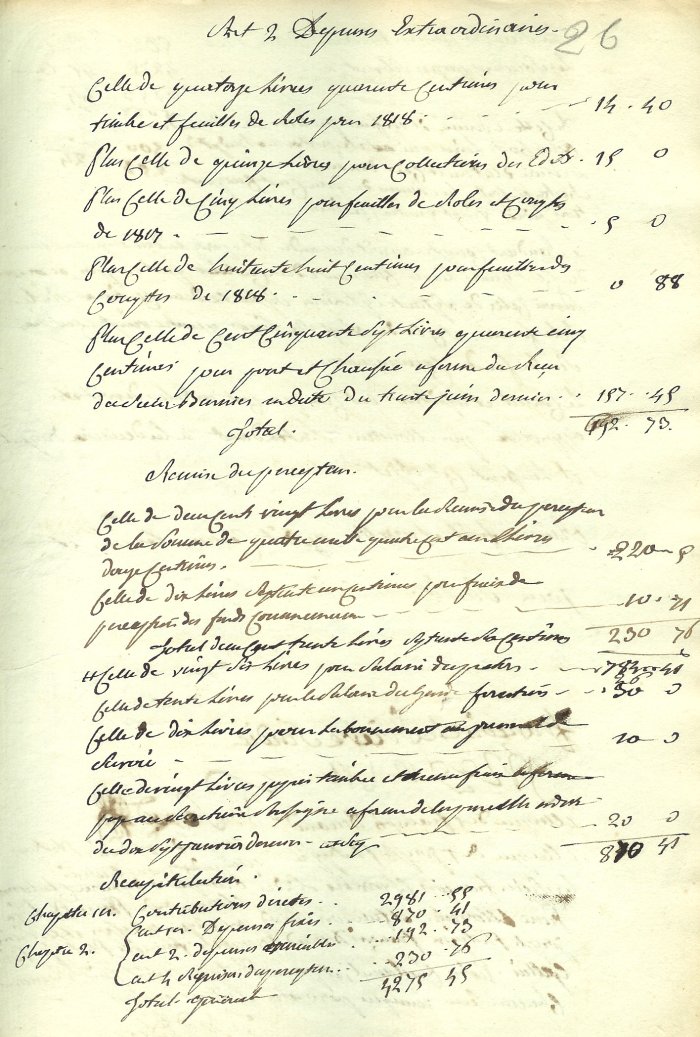 Art 2 Depenses Extraordinaires.
26
Celle de quatorze Livres quarante Centimes pour
timbre et feuilles de Roles pour 1818. 14 . 40
Plus Celle de quinze Livres pour Collections des Edits. 15 0
Plus Celle de Cinq Livres pour feuilles de Roles et Comptes
de 1817 . 5 0
Plus Celle de huitante huit Centimes pour feuilles des
Comptes de 1818. 0 88
Plus Celle de Cent Cinquante Sept Livres quarante cinq
Centimes pour pont et Chaussée a forme du
du Burnier en date du trente juin dernier . . 157 . 45
Total. 192 . 73.
Remise du percepteur.
Celle de deux Cents vingt Livres pour la Remise du percepteur
de la Somme de quatre mille quatre cent Livres
Centimes. 220 5
Celle de dix Livres Septante un Centimes pour frais de
perception des fonds 10 . 71
Total deux Cent trente Livres Septante Six Centimes 230 76
Celle de vingt Six Livres pour Salaire du 26
Celle de trente Livres pour le Salaire du Garde forestier 30 0
Celle de dix Livres pour Labonnement au journal de
Savoie 10 0
Celle de vingt Livres papier timbre et a forme
a forme de
du dix Sept Janvier dernier 20 0
870 41
Recapitulation.
Chapitre 1er. Contributions directes . . 2981 . 55
Chapitre 2. art 1er. Depenses fixes . . 870 . 41
art 2. depenses . . 192 . 73
art 4 Remises du percepteur . . 230 . 76
Total General 4275 45